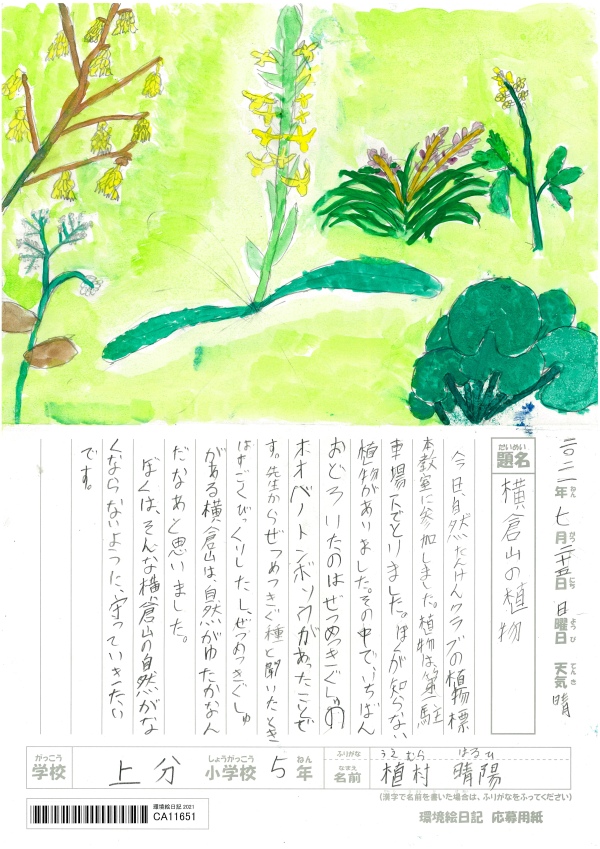 二〇二一年 七月 二十五日 日曜日 天気 晴
ねん がつ にち ようび てんき
だいめい
題名 横倉山の植物
今日、自然たんけんクラブの植物標
本教室に参加しました。植物は、第一駐
車場下でとりました。ぼくが知らない
植物がありました。その中で、いちばん
おどろいたのはぜつめつきぐしゅの
オオバノトンボソウがあったことで
す。先生からぜつめつきぐ種と聞いたとき
はすごくびっくりしたし、ぜつめつきぐしゅ
がある横倉山は、自然がゆたかなん
だなあと思いました。
ぼくは、そんな横倉山の自然がな
くならないように、守っていきたい
です。
がっこう しょうがっこう ねん ふりがな うえむら はるひ
学校 上分 小学校 5年 なまえ 名前 植村 晴陽
(漢字で名前を書いた場合は、ふりがなをふってください)
環境絵日記 応募用紙
環境絵日記 2021
CA11651